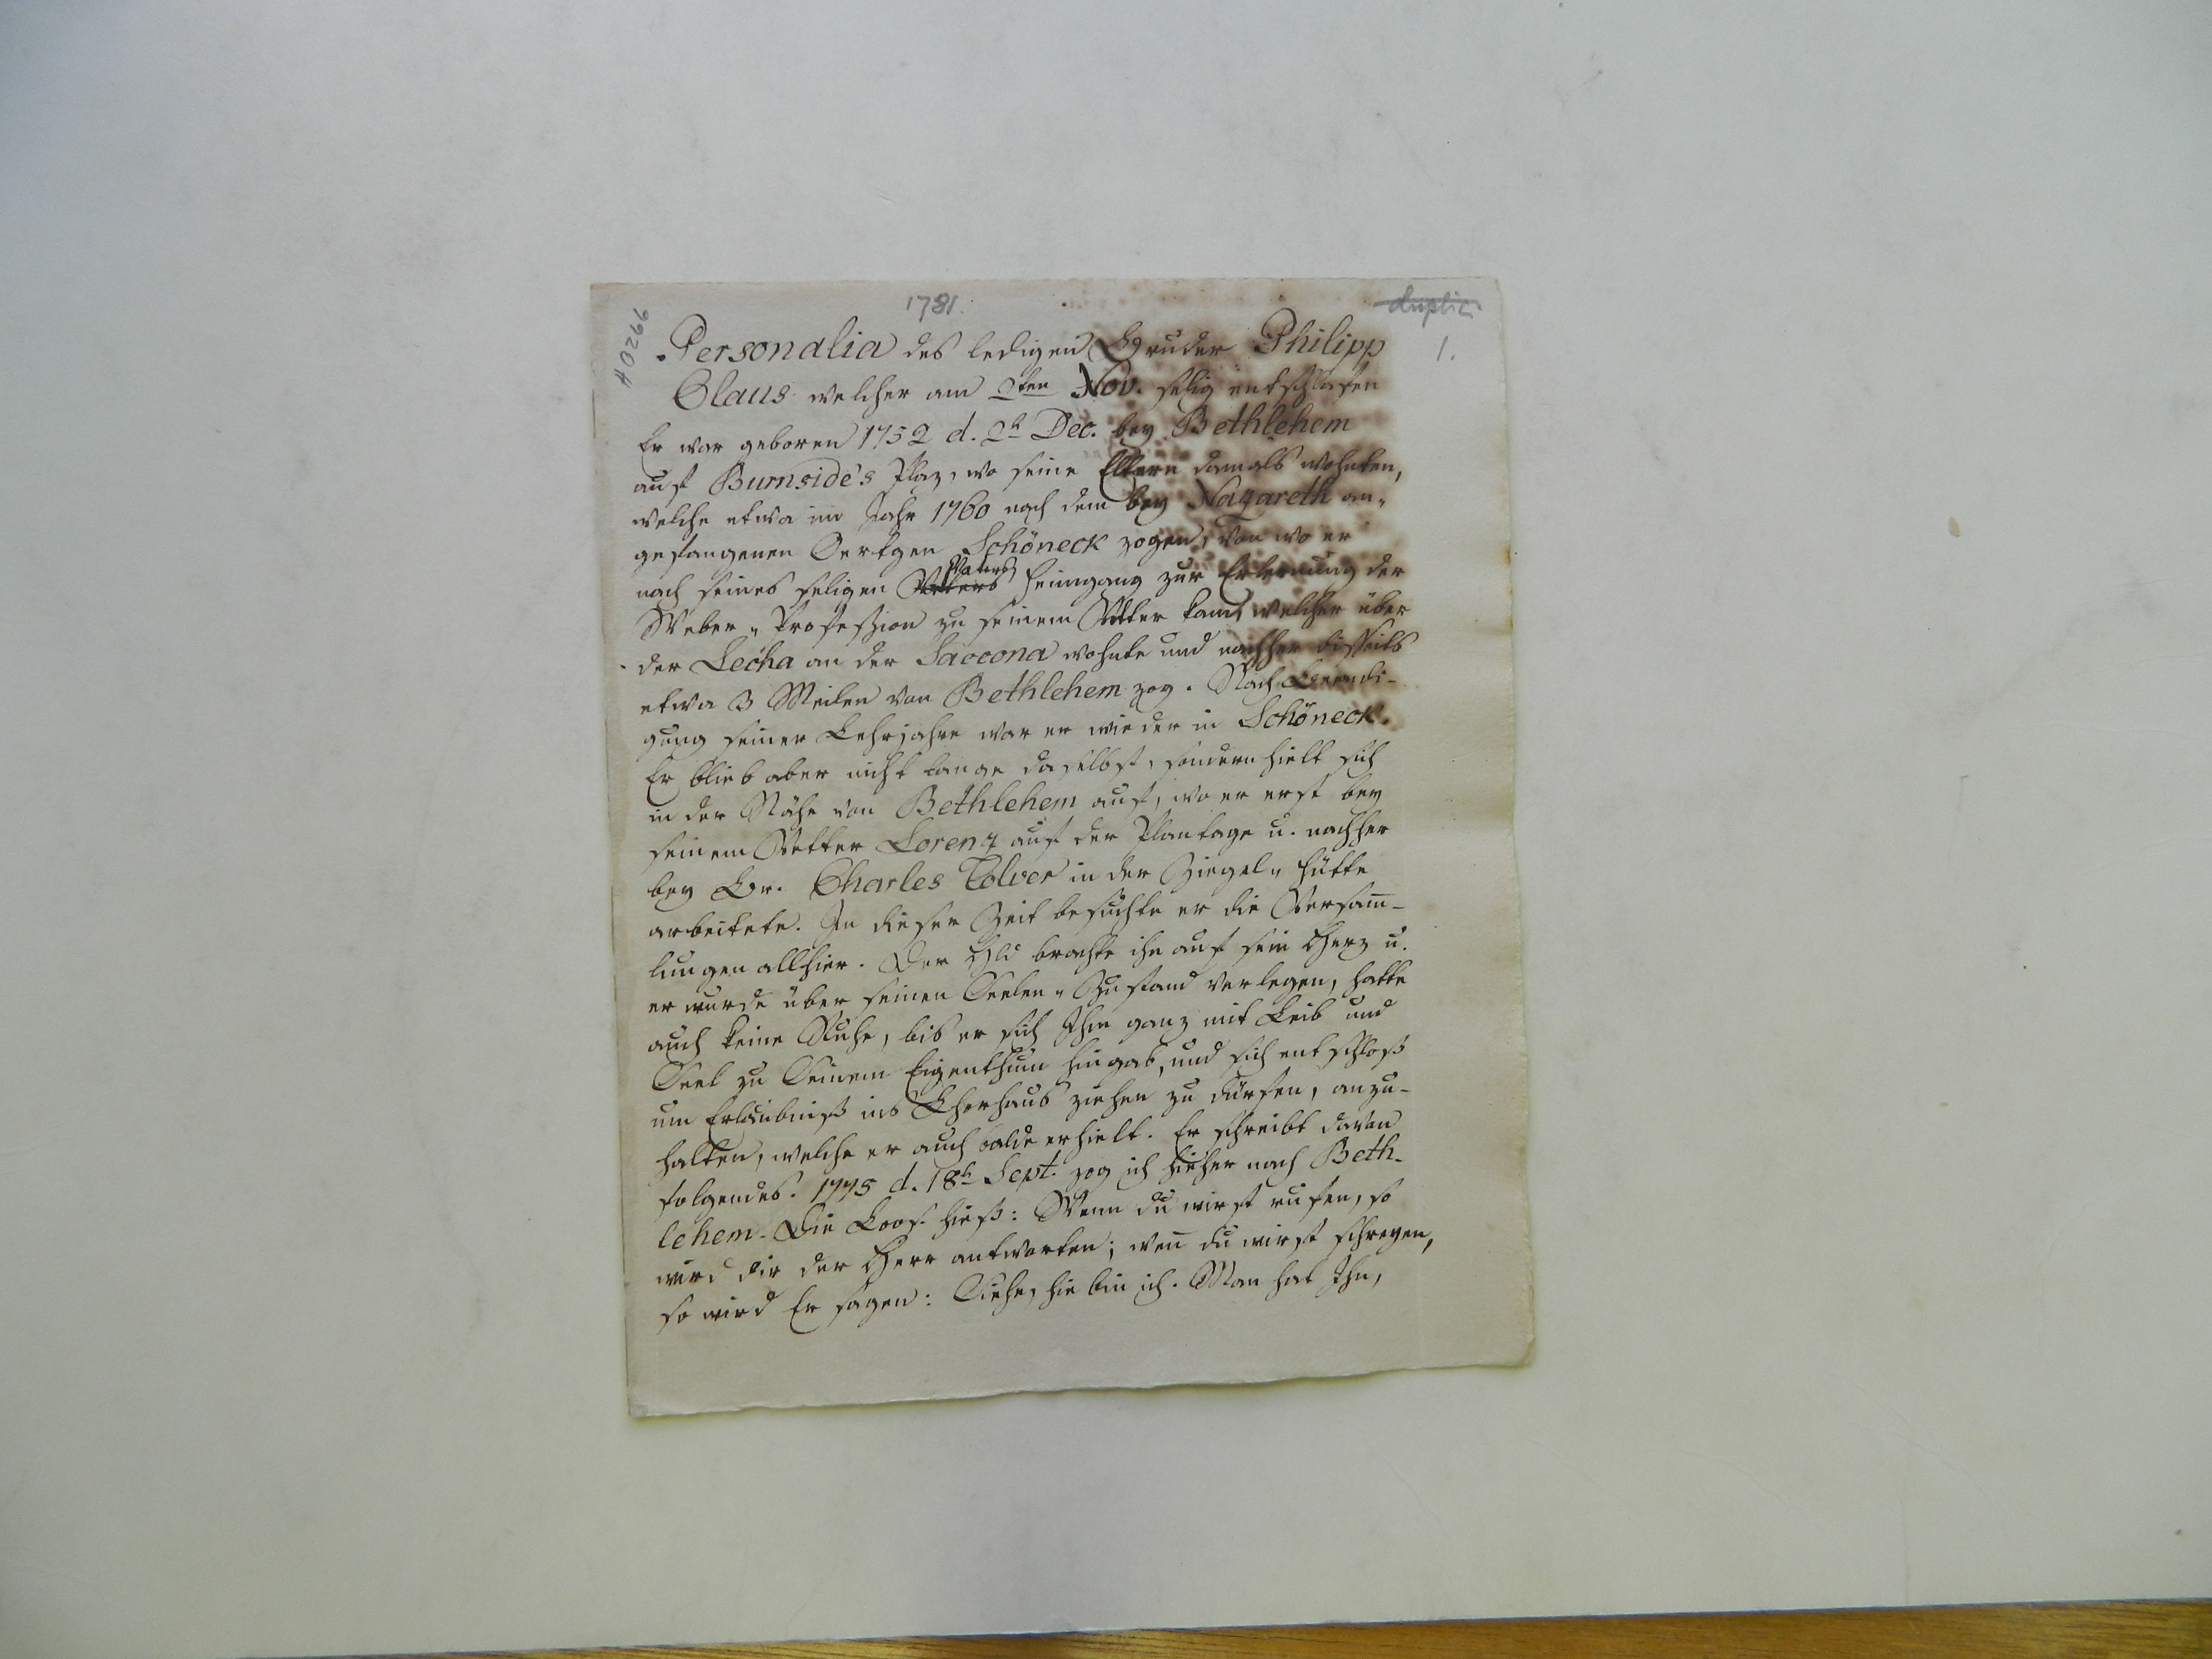 1781.
duplic.
H 0266
1.
Personalia des ledigen Bruder Philipp
Claus welcher am 2ten Nov. selig entschlafen
Er war geboren 1752 d. 2t Dec. bey Bethlehem
auf Burnside's Plaz, wo seine Eltern damals wohnten,
welche etwa im Jahr 1760 nach dem bey Nazareth an„
gefangenen Oertgen Schöneck zogen, von wo er
nach seines seligen Vetters Vaters heimgang zur Erlernung der
Weber„Profeszion zu seinem Vetter kam, welcher über
der Lecha an der Saocona wohnte und nachher disseits
etwa 3 Meilen von Bethlehem zog. Nach Beendi-
gung seiner Lehrjahre war er wieder in Schöneck.
Er blieb aber nicht lange daselbst, sondern hielt sich
in der Nähe von Bethlehem auf, wo er erst bey
seinem Vetter Lorenz auf der Plantage u. nachher
bey Br. Charles Colver in der Ziegel„hütte
arbeitete. In dieser Zeit besuchte er die Versam̅-
lungen allhier. Der Hld brachte ihn auf sein Herz u.
er wurde über seinen Seelen„Zustand verlegen, hatte
auch keine Ruhe, bis er sich Ihm ganz mit Leib und
Seel zu Seinem Eigenthum hingab, und sich entschloß
um Erlaubniß ins Chorhaus ziehen zu dürfen, anzu-
halten, welche er auch balde erhielt. Er schreibt davon
folgendes. 1775 d. 18t Sept. zog ich hieher nach Beth-
lehem. Die Loos. hieß: Wenn du wirst rufen, so
wird dir der Herr antworten; wen̅ du wirst schreyen,
so wird Er sagen: Siehe, hie bin ich. Man hat Ihn,